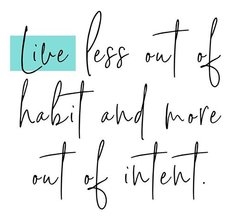 Live less out of
habit and more
out of intent.